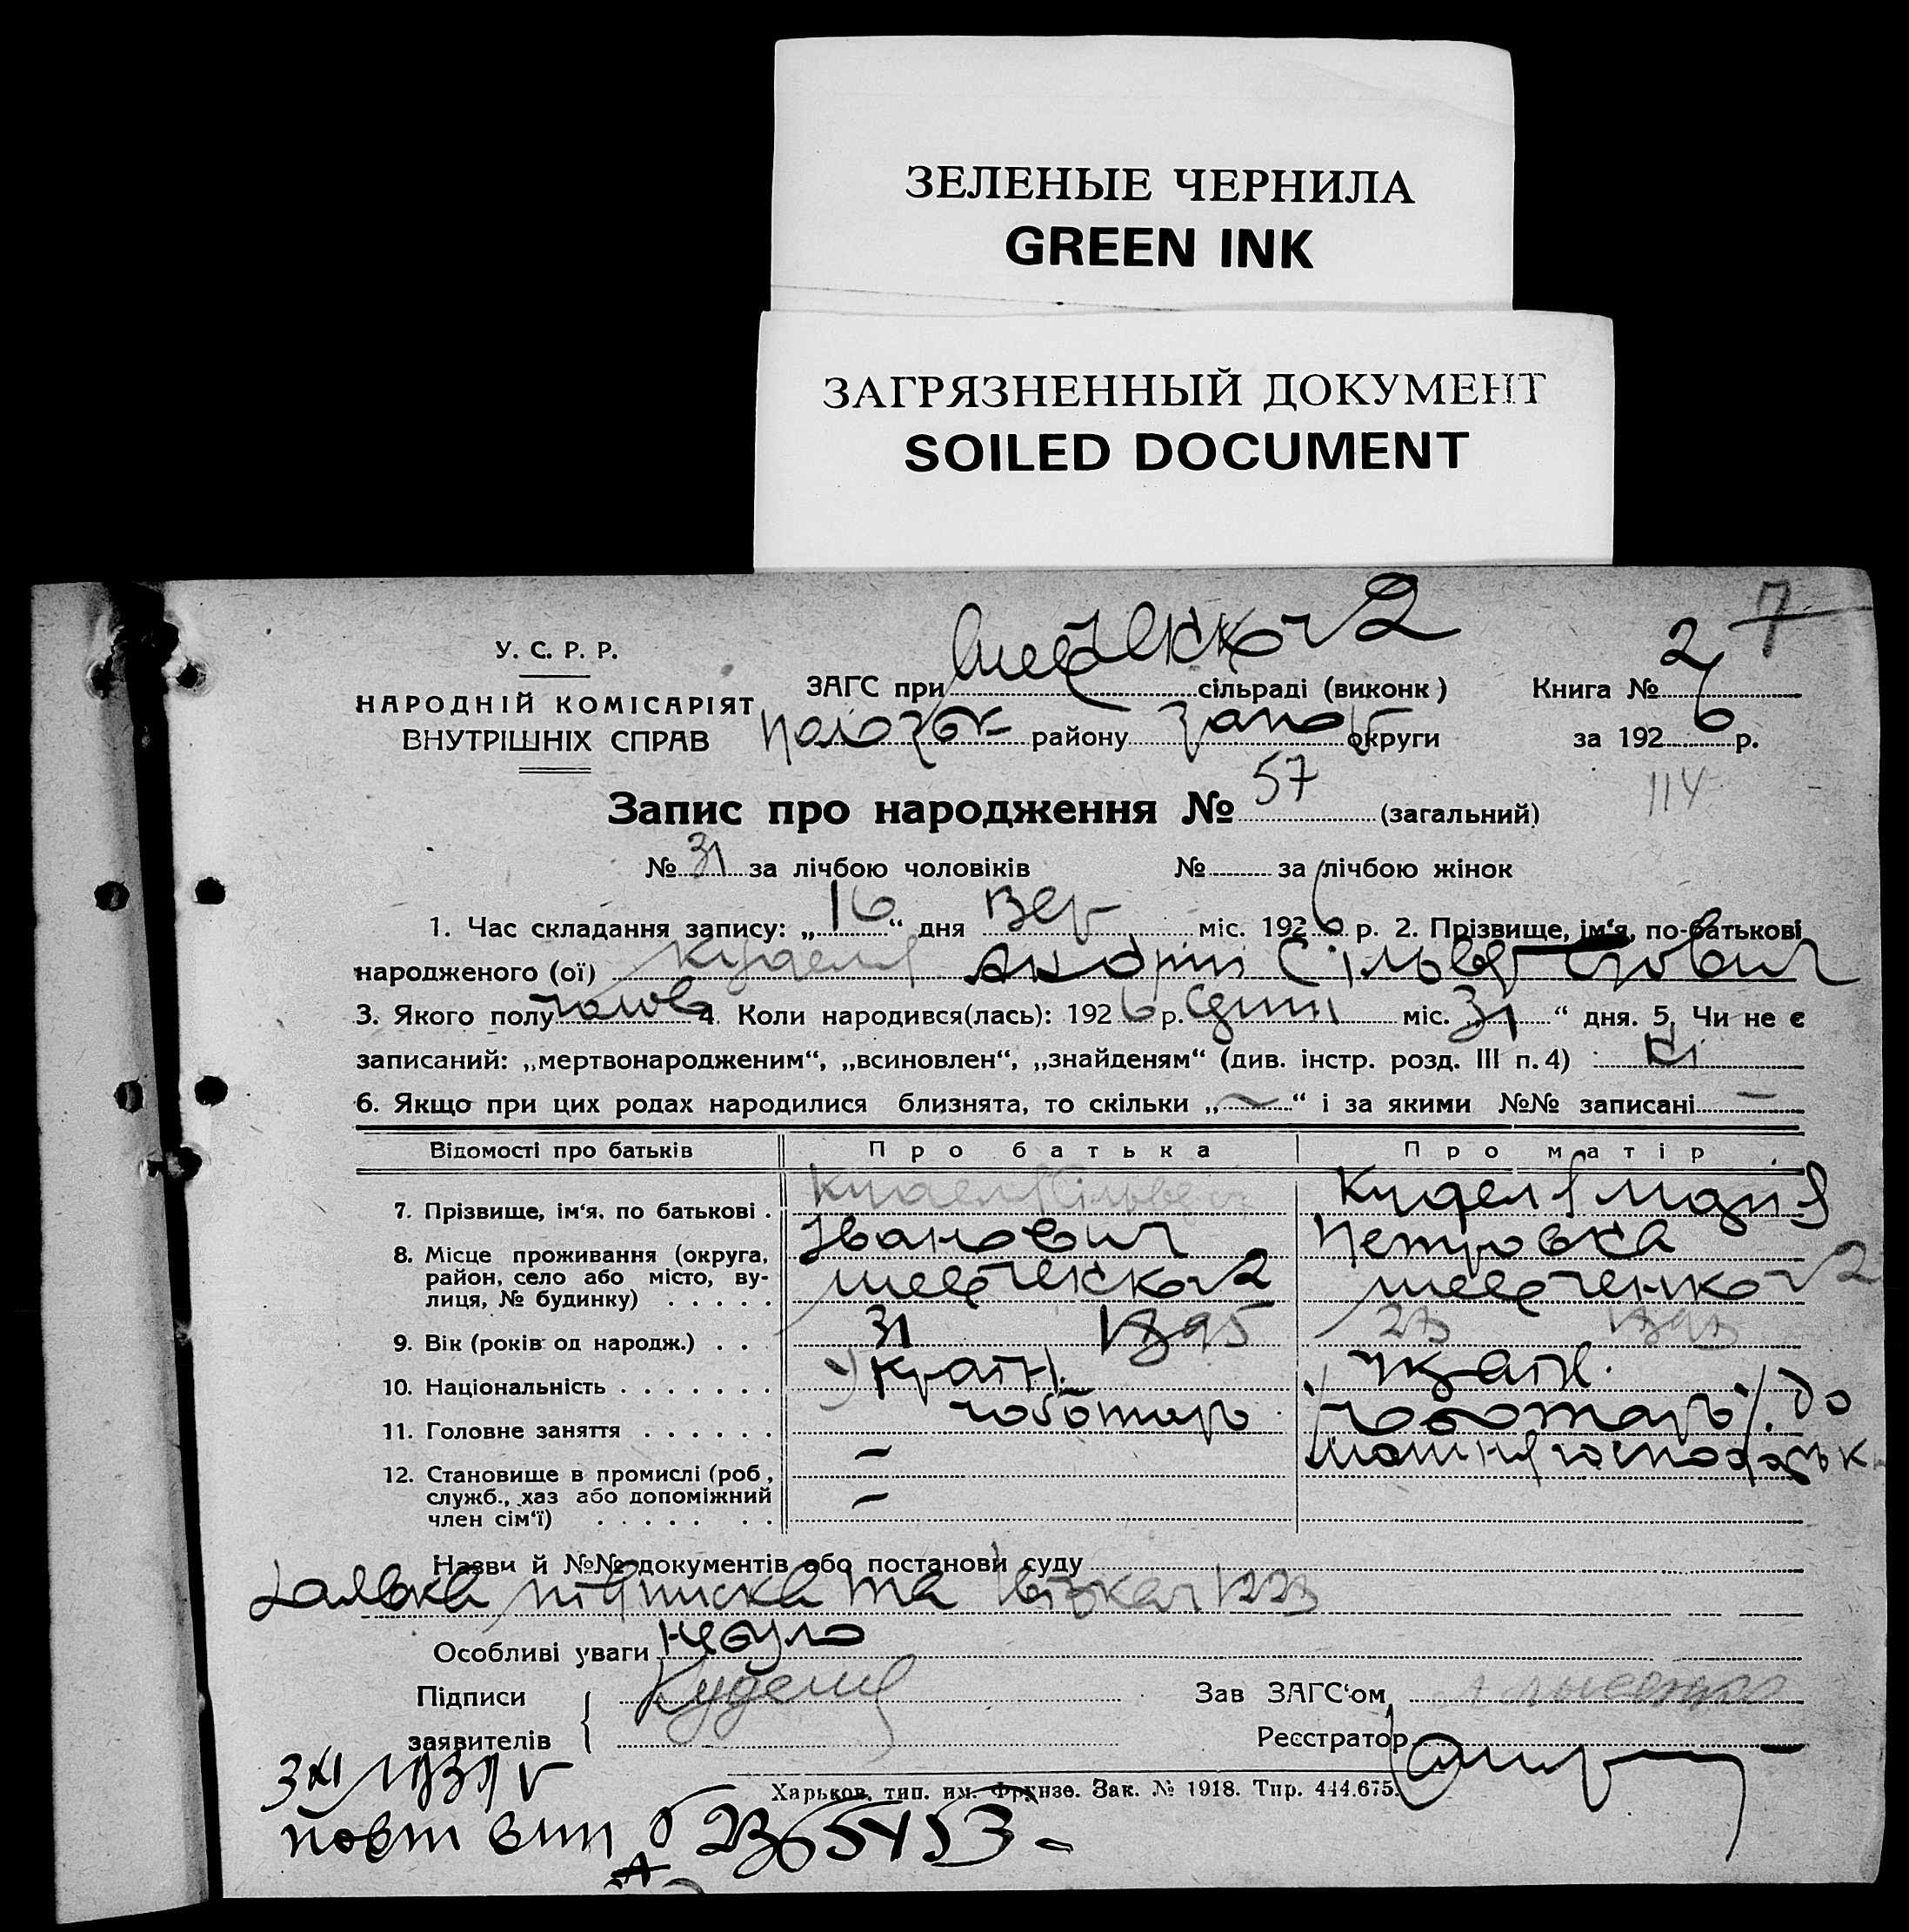 ЗЕЛЕНЫЕ ЧЕРНИЛА
GREEN INK
ЗАГРЯЗНЕННЫЙ ДОКУМЕНТ
SOILED DOCUMENT
7
У. С. Р. Р.
НАРОДНІЙ КОМІСАРІЯТ
ВНУТРІШНІХ СПРАВ
ЗАГС при Шевченков2 сільраді (виконк) Книга № 2
району Запор округи за 1926 р.
114
Запис про народження № 57 (загальний)
№ 31 за лічбою чоловіків № за лічбою жінок
1. Час складання запису: „16“ дня Вер міс. 1926 р. 2. Прізвище, ім‘я, по-батькові
народженого (ої) Куделя Андрій Сільвестрович
3. Якого полу чолов 4. Коли народився(лась): 1926 р. Серпня міс. „31“ дня. 5. Чи не є
записаний: „мертвонародженим“, „всиновлен“, „знайденям“ (див. інстр. розд. III п. 4) Ні
6. Якщо при цих родах народилися близнята, то скільки „—“ і за якими №№ записані —
Відомості про батьків Про батька Про матір
7. Прізвище, ім‘я, по батькові . Куделя Сільвест Куделя Марія
Іванович Петровна
8. Місце проживання (округа,
район, село або місто, ву-
лиця, № будинку) . . . . . Шевченков2 Шевченков2
9. Вік (років од народж.) . . . 31 1895 28 1898
10. Національність . . . . . . . Украін. Украін.
11. Головне заняття . . . . . . чоботарь чоботарь до
машня господарськ
12. Становище в промислі (роб,
служб., хаз або допоміжний
член сім‘ї) . . . . . . . — —
Назви й №№ документів або постанови суду
Заявка підписка та
Особливі уваги не було
Підписи
заявителів Куделя
Зав ЗАГС‘ом
Реєстратор
Харьков, тип. им. Фрунзе. Зак. № 1918. Тир. 444.675.
3 XI 1939 г
повт вип